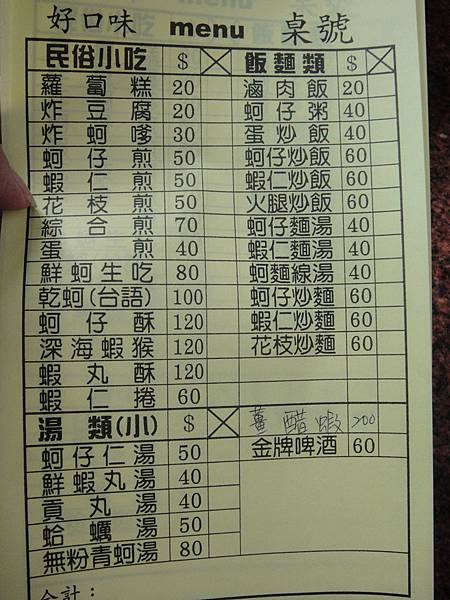 好口味 menu 桌號
民俗小吃 $ 飯麵類 $
蘿蔔糕 20 滷肉飯 20
炸豆腐 20 蚵仔粥 40
炸蚵嗲 30 蛋炒飯 40
蚵仔煎 50 蚵仔炒飯 60
蝦仁煎 50 蝦仁炒飯 60
花枝煎 50 火腿炒飯 60
綜合煎 70 蚵仔麵湯 40
蛋煎 40 蝦仁麵湯 40
鮮蚵生吃 80 蚵麵線湯 40
乾蚵(台語) 100 蚵仔炒麵 60
蚵仔酥 120 蝦仁炒麵 60
深海蝦猴 120 花枝炒麵 60
蝦丸酥 120
蝦仁捲 60
湯類(小) $ 薑醋蝦 200
蚵仔仁湯 50 金牌啤酒 60
鮮蝦丸湯 40
貢丸湯 40
蛤蠣湯 50
無粉青蚵湯 80
合計：